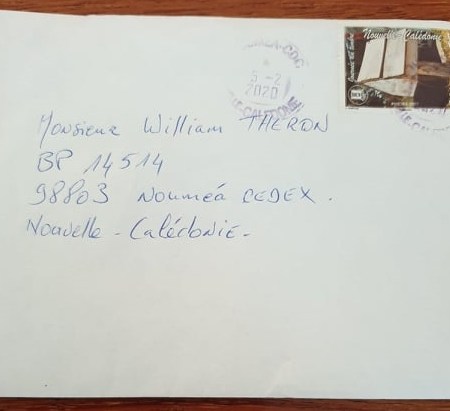 5-2
2020
Nouvelle-Calédonie
Monsieur William THERON
BP 14514
98803 Nouméa CEDEX.
Nouvelle-Calédonie.